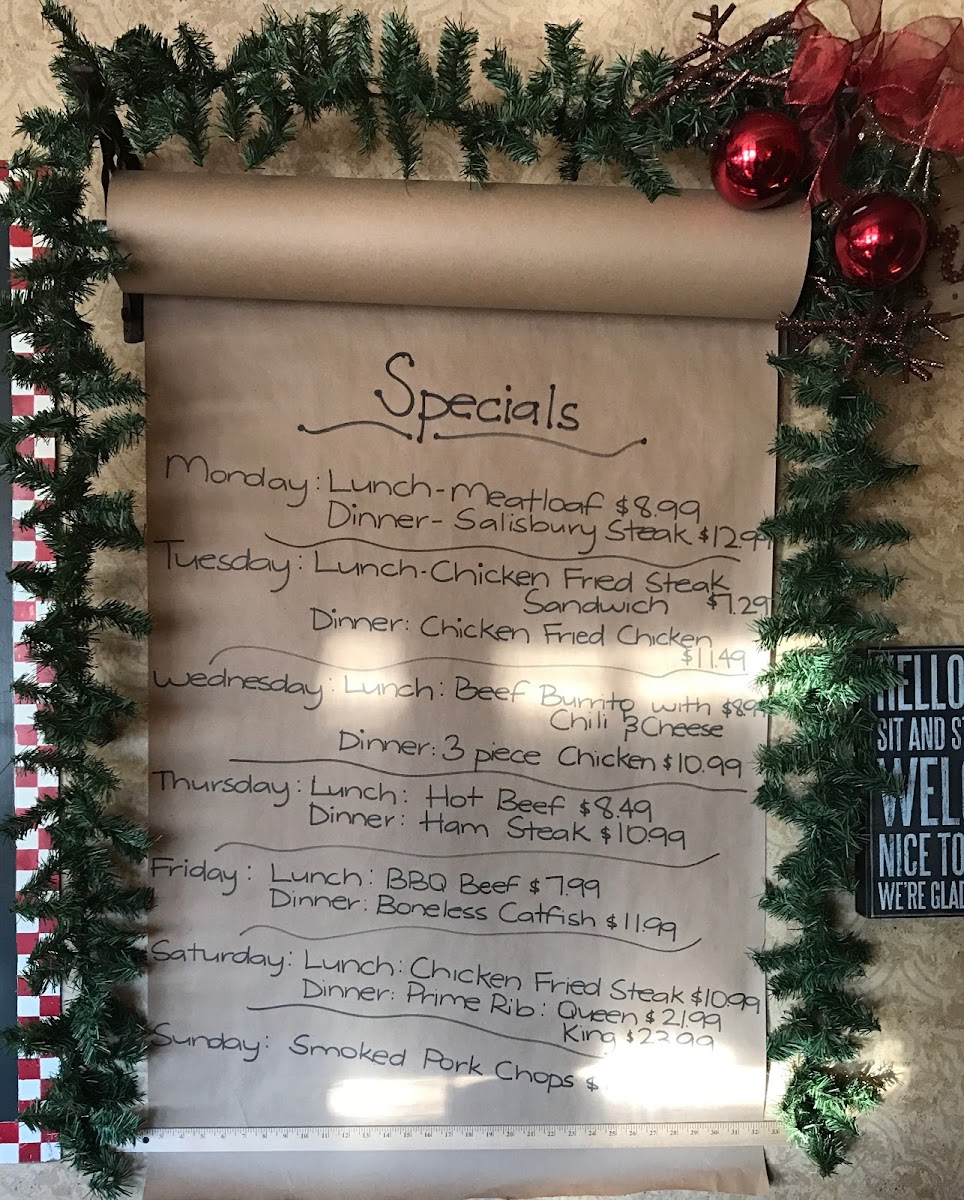 Specials
Monday: Lunch-Meatloaf $8.99
Dinner- Salisbury Steak $12.99
Tuesday: Lunch-Chicken Fried Steak
Sandwich $7.29
Dinner: Chicken Fried Chicken
$11.49
Wednesday: Lunch: Beef Burrito with
Chili & Cheese
Dinner: 3 piece Chicken $10.99
Thursday: Lunch: Hot Beef $8.49
Dinner: Ham Steak $10.99
Friday: Lunch: BBQ Beef $7.99
Dinner: Boneless Catfish $11.99
Saturday: Lunch: Chicken Fried Steak $10.99
Dinner: Prime Rib: Queen $21.99
King $23.99
Sunday: Smoked Pork Chops $
HELLO
SIT AND
WEL
NICE TO
WE'RE GLAD